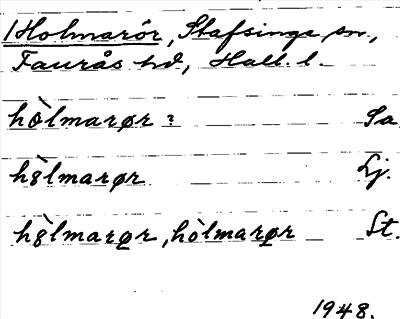 1 Holmarör, Stafsinge sn.,
Faurås hd, Hall. l.
hòlmarør ? Sa
hòlmarør Lj.
hòlmarør, hòlmarør St.
1948.